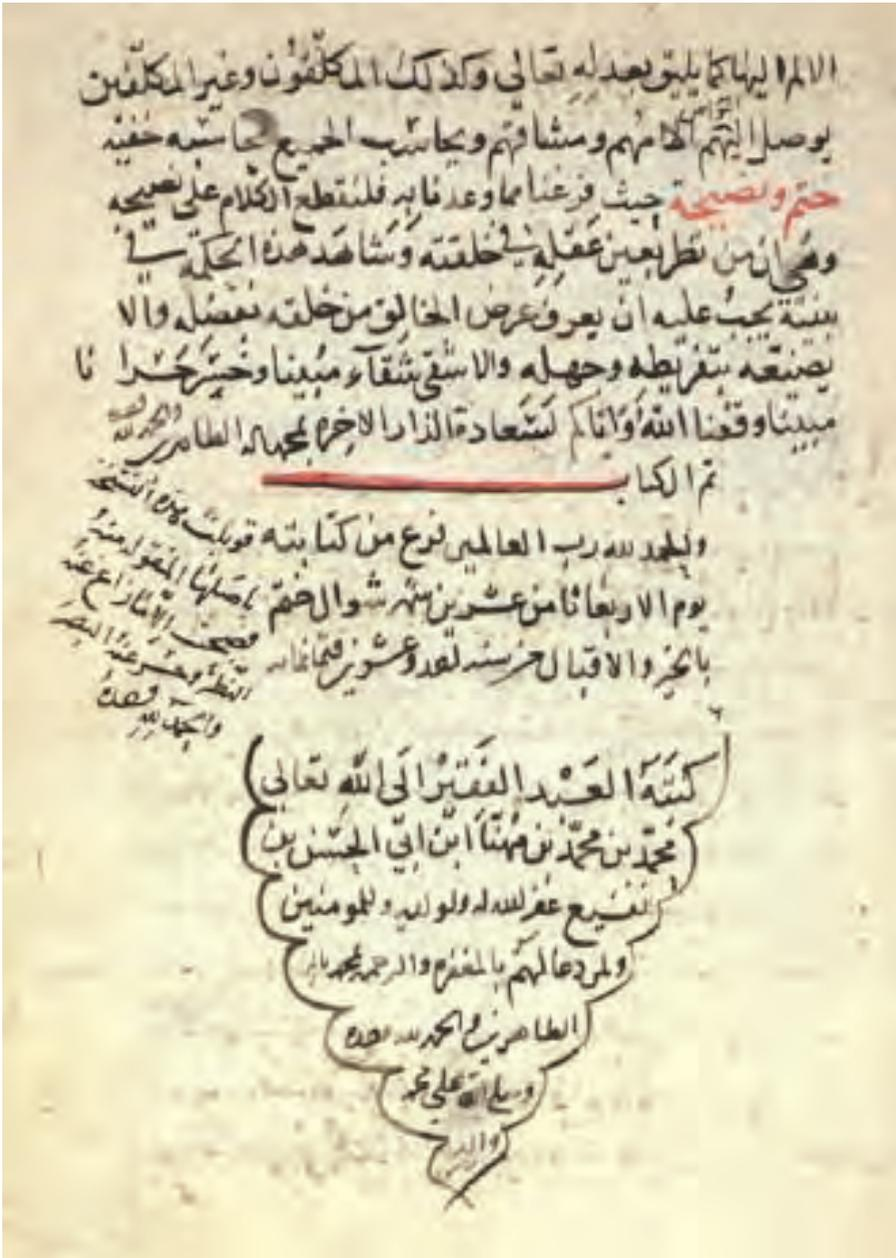 الالم اليها كما يليق بعدله تعالى وكذلك المكلفون وغير المكلفين
يوصل اليهم الامهم ومشاقهم ويحاسب الجميع محاسبه خفيه
ختم ونصيحة حيث فرغنا مما وعدنا به فلنقطع الكلام على نصيحه
وهي ان من نظر بعين عقله في خلقته وشاهد هذه الحكمة في
بنيته يجب عليه ان يعرف غرض الخالق من خلقه بفضله والا
يضيعه بتفريطه وجهله والا شقى شقاء مبينا وخسر خسرا نا
مبينا وفقنا الله واياكم لسعادة الدار الاخره بمحمد واله الطاهرين
تم الكتاب
والحمد لله رب العالمين فرغ من كتابته
يوم الاربعا ثامن عشرين شهر شوال ختم
بالخير والاقبال من سنه وعشرين وثمانمائه
قوبلت هذه النسخة
باصلها المنقوله منه
فصحت الا ما زاغ عنه
النظر وحسر عنه البصر
والحمد لله وحده
كتبه العبد الفقير الى الله تعالى
محمد بن محمد بن مهنا ابن ابي الحسن بن
غفر الله له ولوالديه وللمومنين
ولمن دعا لهم بالمغفره والرحمه بمحمد
الطاهرين والحمد لله وحده
وصلى الله على محمد
واله